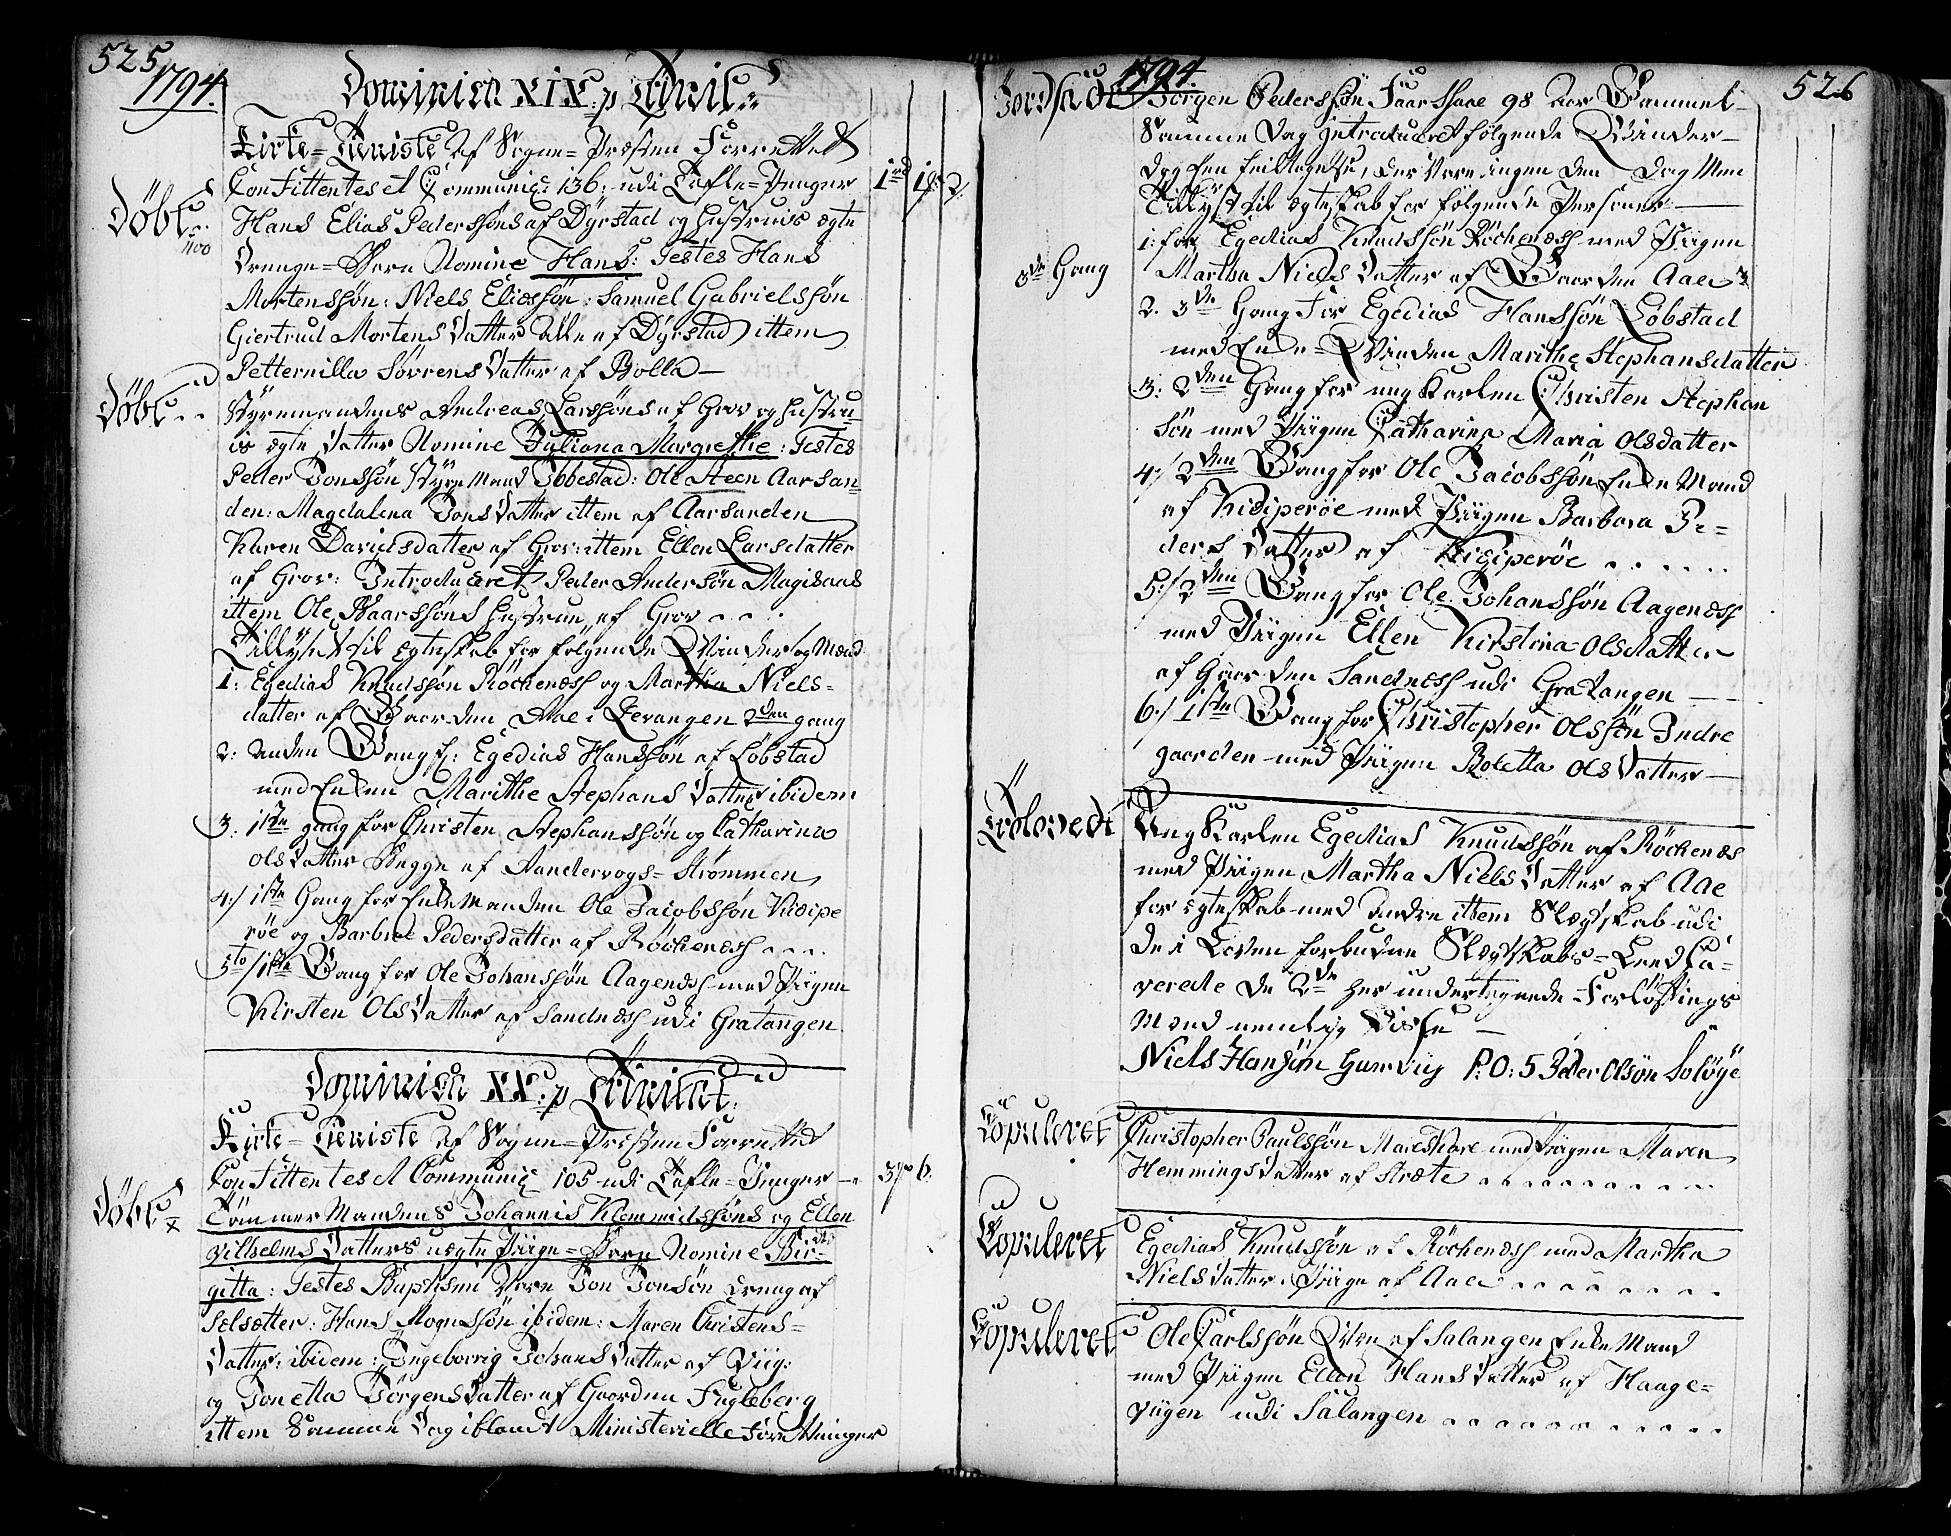 525
1794.
Dominica XIX: p Trinit:
Kirke=Tieniste af Sogne=Præsten Forrettet
Confittentes et Communic: 136: udi Tafle=Penger
Døbt
Hans Elias Pederssøns af Dyrstad og Hustruis ægte
Drenge=Barn Nomine Hans: Testes Hans
Mortenssøn: Niels Eliessøn: Samuel Gabrielssøn
Giertrud Mortens Datter alle af Dyrstad ittem
Petternilla Sørrens Datter af Bolla
Døbt
Styrmandens Andreas Larssøns af Grov og Hustru
is ægte Datter Nomine Juliana Margrethe: Testes
Peder Jonssøn Styrmand Ibbestad: Ole Steen Aarsan=
den: Magdalena Jons Datter ittem af Aarsanden
Karen Davidsdatter af Grov: ittem Ellen Larsdatter
af Grov: Introduceret Peder Anderssøn
ittem Ole Haarssøns Hustrue af Grov
Tillyst til Ægteskab for følgende Qvinder og Mænd
1: Egedias Knudssøn Röckenæss og Martha Niels=
datter af Gaarden Aae i Levangen 2den gang
2: Anden Gang f: Egedias Hanssøn af Løbstad
med Enken Marithe Stephans Datter ibidem
3: 1ste gang for Christen Stephanssøn og Catharina
Ols Datter Begge af Sandervogs=Strømmen
4:/ 1ste Gang for Enkemanden Ole Jacobssøn Kidipe
røe og Barbroe Pedersdatter af Röckenæss
5to/1ste Gang for Ole Johanssøn Aagenæss med Piigen
Kirsten Ols Datter af Sandnæss udi Gratangen
Dominica XX: p Trinitat:
Kirke=Tieniste af Sogne=Præsten Forrettet
Confittentes et Communic 105 udi Tafle=Penger
Døbt
Tømmer Mandens Johannis Klemmidssøns og Ellen
Vilhelms Datters uægte Piige=Barn Nomine Bir=
gitta: Testes Baptismi Vare Jon Jonsøn Dreng af
Selsætter: Hans Mognssøn ibidem: Maren Christens=
Datter: ibidem: Ingeborrig Johans Datter af Viig:
og Jonetta Jørgens Datter af Gaarden Fugleberg
ittem Samme Dag iblandt Ministerielle Forretninger
526
1794.
Jordfæstet
Jørgen Pederssøn Faarshaae 98 Aar Gammel
Samme Dag Introduceret følgende Qvinder
Dog een feiltagelse, der vare ingen den Dag Men
Tillyst til Ægteskab for følgende Personer
3de Gang
1: for Egedias Knudssøn Röckenæss med Piigen
Martha Niels Datter af Gaarden Aae
2. 3de Gang for Egedias Hanssøn Løbstad
med Enke=Qvinden Marithe Stephansdatter
3: 2den Gang for ung Karlen Christen Stephan
søn med Piigen Catharina Maria Olsdatter
4:/ 2den Gang for Ole Jacobssøn Enke Mand
af Kidiperøe med Piigen Barbara Pe=
ders Datter af Kidiperøe
5:/ 2den Gang for Ole Johanssøn Aagenæss
med Piigen Ellen Kirstina Olsdatter
af Gaarden Sandnæss udi Gratangen
6:/ 1ste Gang for Christopher Olssøn Indre
gaarden med Piigen Boletta Ols Datter
Trolovedt
Ung Karlen Egedias Knudssøn af Röckenæs
med Piigen Martha Niels Datter af Aae
for Ægteskab med Andre ittem Slægtskab udi
de i Loven forbudne Slægtskabs=Leed Ca=
verede de 2de her undertegnede Forløftnings
Mænd nemlig Disse
Niels Hansøn P: O: S Peder Olsøn Soløye
Copuleret
Christopher Paulssøn med Piigen Maren
Hemmings Datter af Stræte
Copuleret
Egedias Knudssøn af Röckenæss med Martha
Niels Datter Piige af Aae
Copuleret
Ole Carlssøn Qvæn af Salangen Enke Mand
med Piigen Ellen Hans Datter af Haage=
viigen udi Salangen